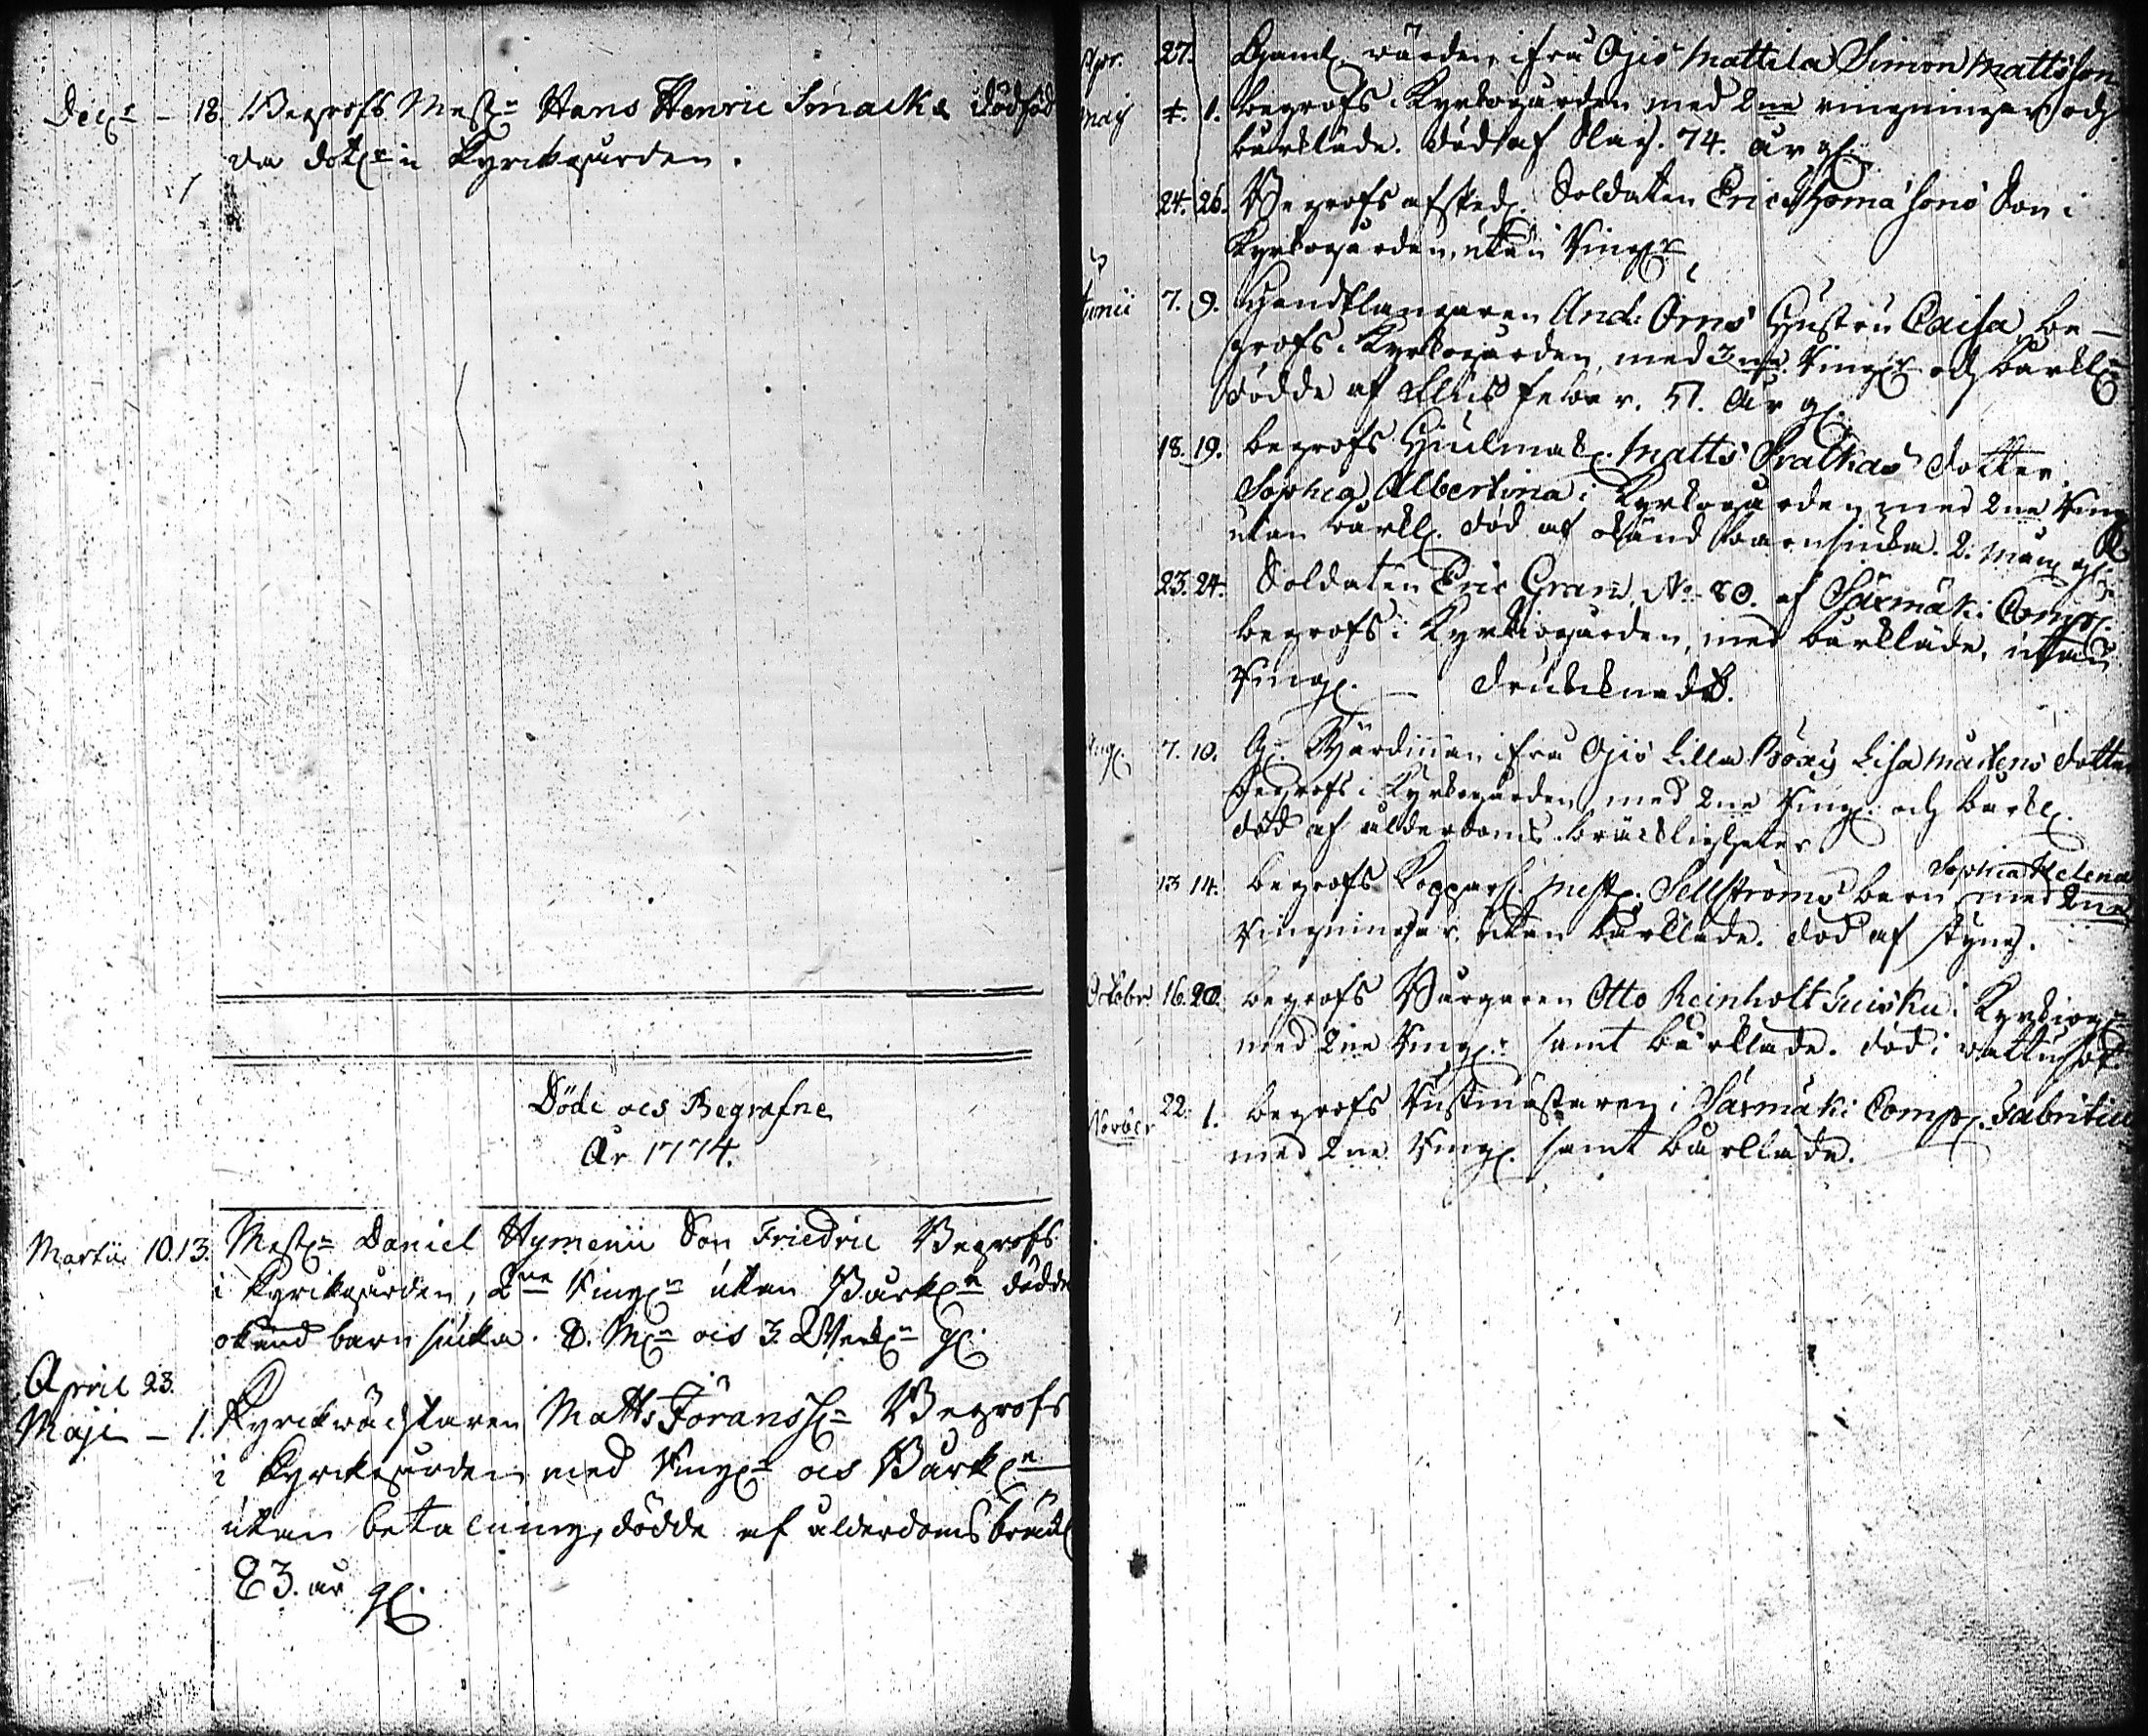 Dec:r – 18. Begrofs Mest:n Hans Henric Smacks dödföd
da dott:r i Kyrckogården.
Döde och Begrafne
År 1774.
Martii 10. 13. Mest:n Daniel Hymenii Son Friedric Begrofs
i Kyrckogården, 2ne Ring:r utan Bårk:e dödde
okänd barnsiuka. 8. M:r och 3. Veck:r g:l.
April 23.
Maji – 1. Kyrckwächtaren Matts Jöranss:n Begrofs
i Kyrckogården med Ring:r och Bårk:e
utan betalning, dödde af ålderdomsbräckl
83. år g:l.
Apr. 27. Gaml. wärden ifrå Ojis Mattila Simon Mattsson
Maij 4. 1. begrofs i Kyrkogården med 2ne ringningar och
bårkläde. död af Slag. 74. år gl.
24. 26. Begrofs afsked. Soldaten Eric Thomæsons Son i
Kyrkogården, utan Ring:r
Junii 7. 9. Handtlangaren And: Örns Hustru Caisa, be-
grofs i Kyrkogården, med 3ne Ring:r och bårkl:e
dödde af feber. 51. År gl.
18. 19. begrofs Hiulmak. Matts Pratkas dotter
Sophia Albertina i Kyrkogården med 2ne Ring
utan bårkl. död af okänd barnsiuka. 2. mån gl.
23. 24. Soldaten Eric Gran, No 80. af Säxmäki Comp.
begrofs i Kyrkiogården, med bårkläde, utan
Ring. – drucknade.
Aug. 7. 10. G. Wärdinnan ifrå Ojis Lilla Böxis Lisa Mårtens dotter
begrofs i Kyrkogården, med 2ne Ring. och bårkl.
död af ålderdoms bräckligheter
13 14. begrofs Kopparsl. Mest. Sellströms barn Sophia Helena med 2ne
Ringningar utan bårkläde. död af styng.
Octobr 16. 20. begrofs Borgaren Otto Reinholt Guisku i Kyrkiog:n
med 2ne Ring:r samt bårkläde. död i wattusot.
Novbr 22. 1. begrofs Rustmästaren i Säxmäki Comp. Fabritius
med 2ne Ring. samt bårkläde.